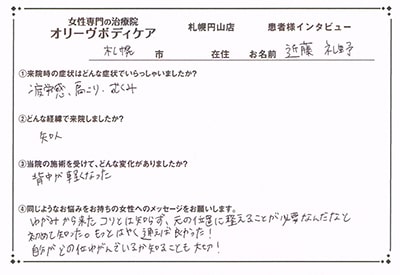 女性専門の治療院
オリーヴボディケア 札幌円山店 患者様インタビュー
札幌 市 在住 お名前 近藤 礼野
①来院時の症状はどんな症状でいらっしゃいましたか?
疲労感、肩こり、むくみ
②どんな経緯で来院しましたか?
知人
③当院の施術を受けて、どんな変化がありましたか?
背中が軽くなった
④同じようなお悩みをお持ちの女性へのメッセージをお願いします。
ゆがみから来たコリとは知らず、元の位置に整えることが必要なんだなと
初めて知った。もっとはやく通えば良かった!
自分がどの位ゆがんでいるか知ることも大切!